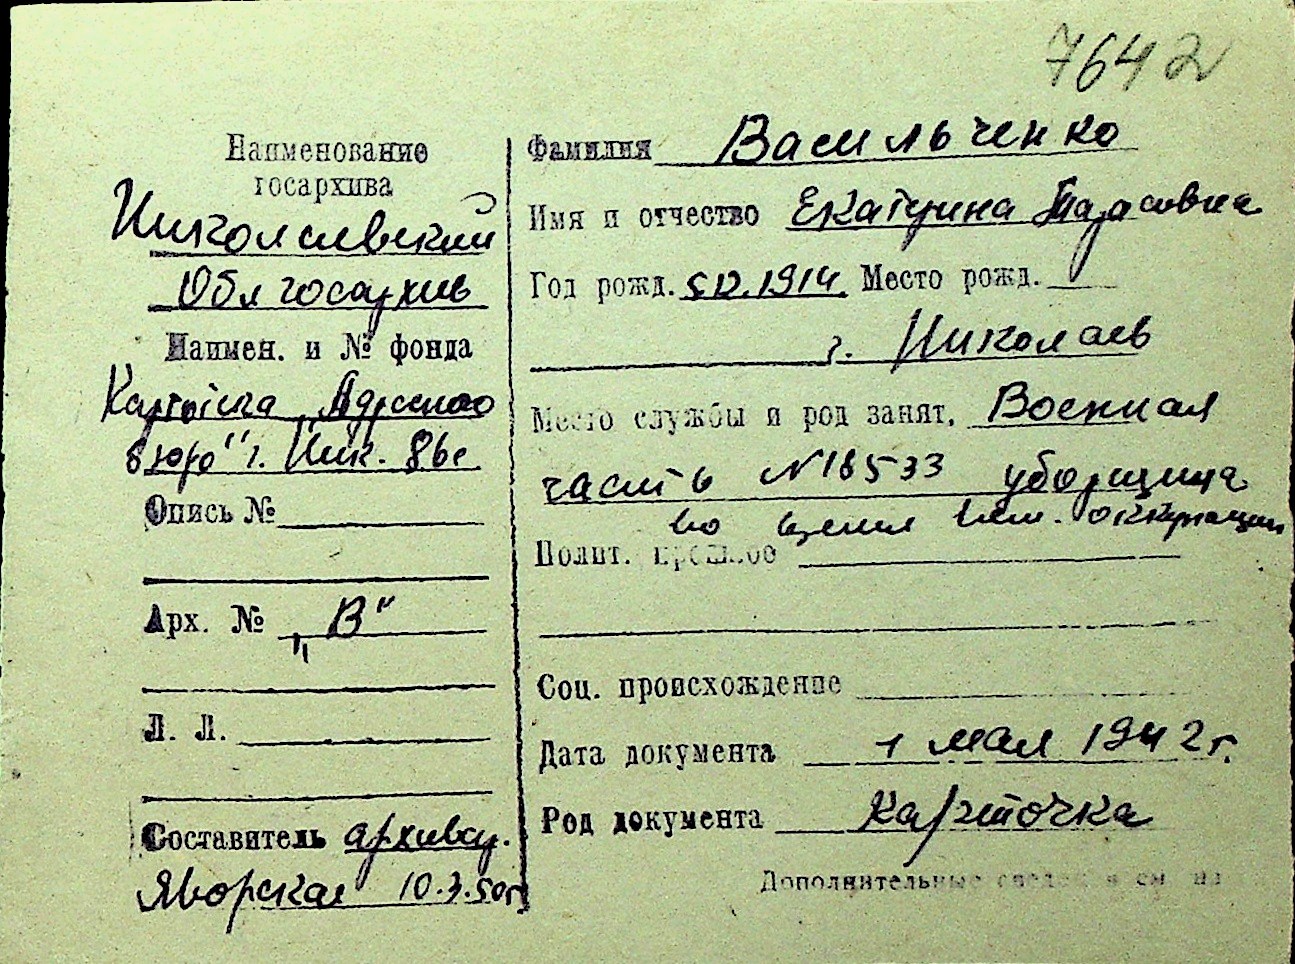 7642
Наименование
госархива
Николаевский
Облгосархив
Наимен. и № фонда
Картотека „Адресного
бюро" г. Ник.
Опись №
Арх. № „В"
Л. Л.
Составитель архивар.
Яворская 10.3.50г
Фамилия Васильченко
Имя и отчество Екатерина Тарасовна
Год рожд. 5.12.1914 Место рожд.
г. Николаев
Место службы и род занят. Военная
часть №18533 уборщица
во время нем. оккупации
Полит. прошлое
Соц. происхождение
Дата документа 1 мая 1942 г.
Род документа Карточка
Дополнительные сведения см. на